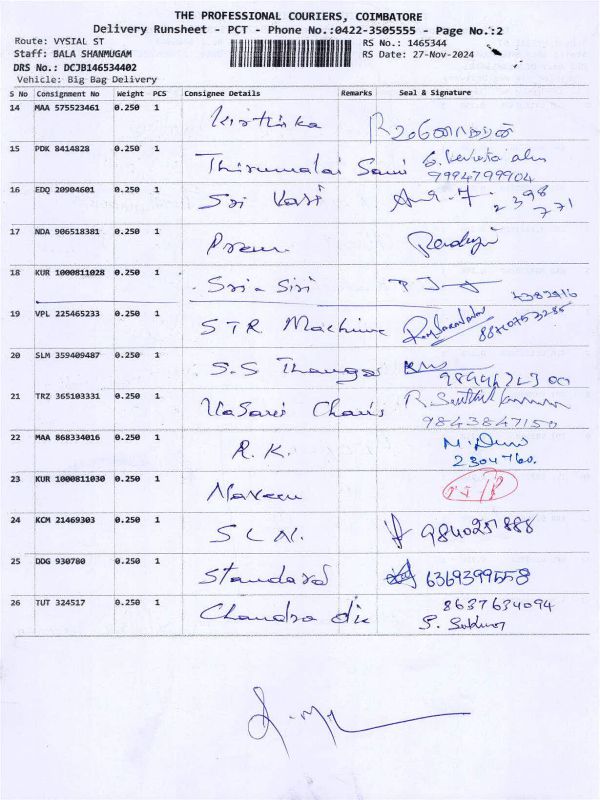 THE PROFESSIONAL COURIERS, COIMBATORE
Delivery Runsheet - PCT - Phone No.:0422-3505555 - Page No.:2
Route: VYSIAL ST
RS No.: 1465344
Staff: BALA SHANMUGAM
RS Date: 27-Nov-2024
DRS No.: DCJB146534402
Vehicle: Big Bag Delivery
S No Consignment No Weight PCS Consignee Details Remarks Seal & Signature
14 MAA 575523461 0.250 1 Kirthika
15 PDK 8414828 0.250 1 Thirumalai Sami
9994799904
16 EDQ 20904601 0.250 1 Sri Vari
2398
771
17 NDA 906518381 0.250 1 Prem
18 KUR 1000811028 0.250 1 Sri-Siri
4382916
19 VPL 225465233 0.250 1 STR Machine
20 SLM 359409487 0.250 1 S.S Thanga
21 TRZ 365103331 0.250 1
9843847150
22 MAA 868334016 0.250 1 R.K.
2304760.
23 KUR 1000811030 0.250 1 Naveen
24 KCM 21469303 0.250 1 S L N.
25 DDG 930780 0.250 1 Standard 6369399558
26 TUT 324517 0.250 1 Chandra 8637634094